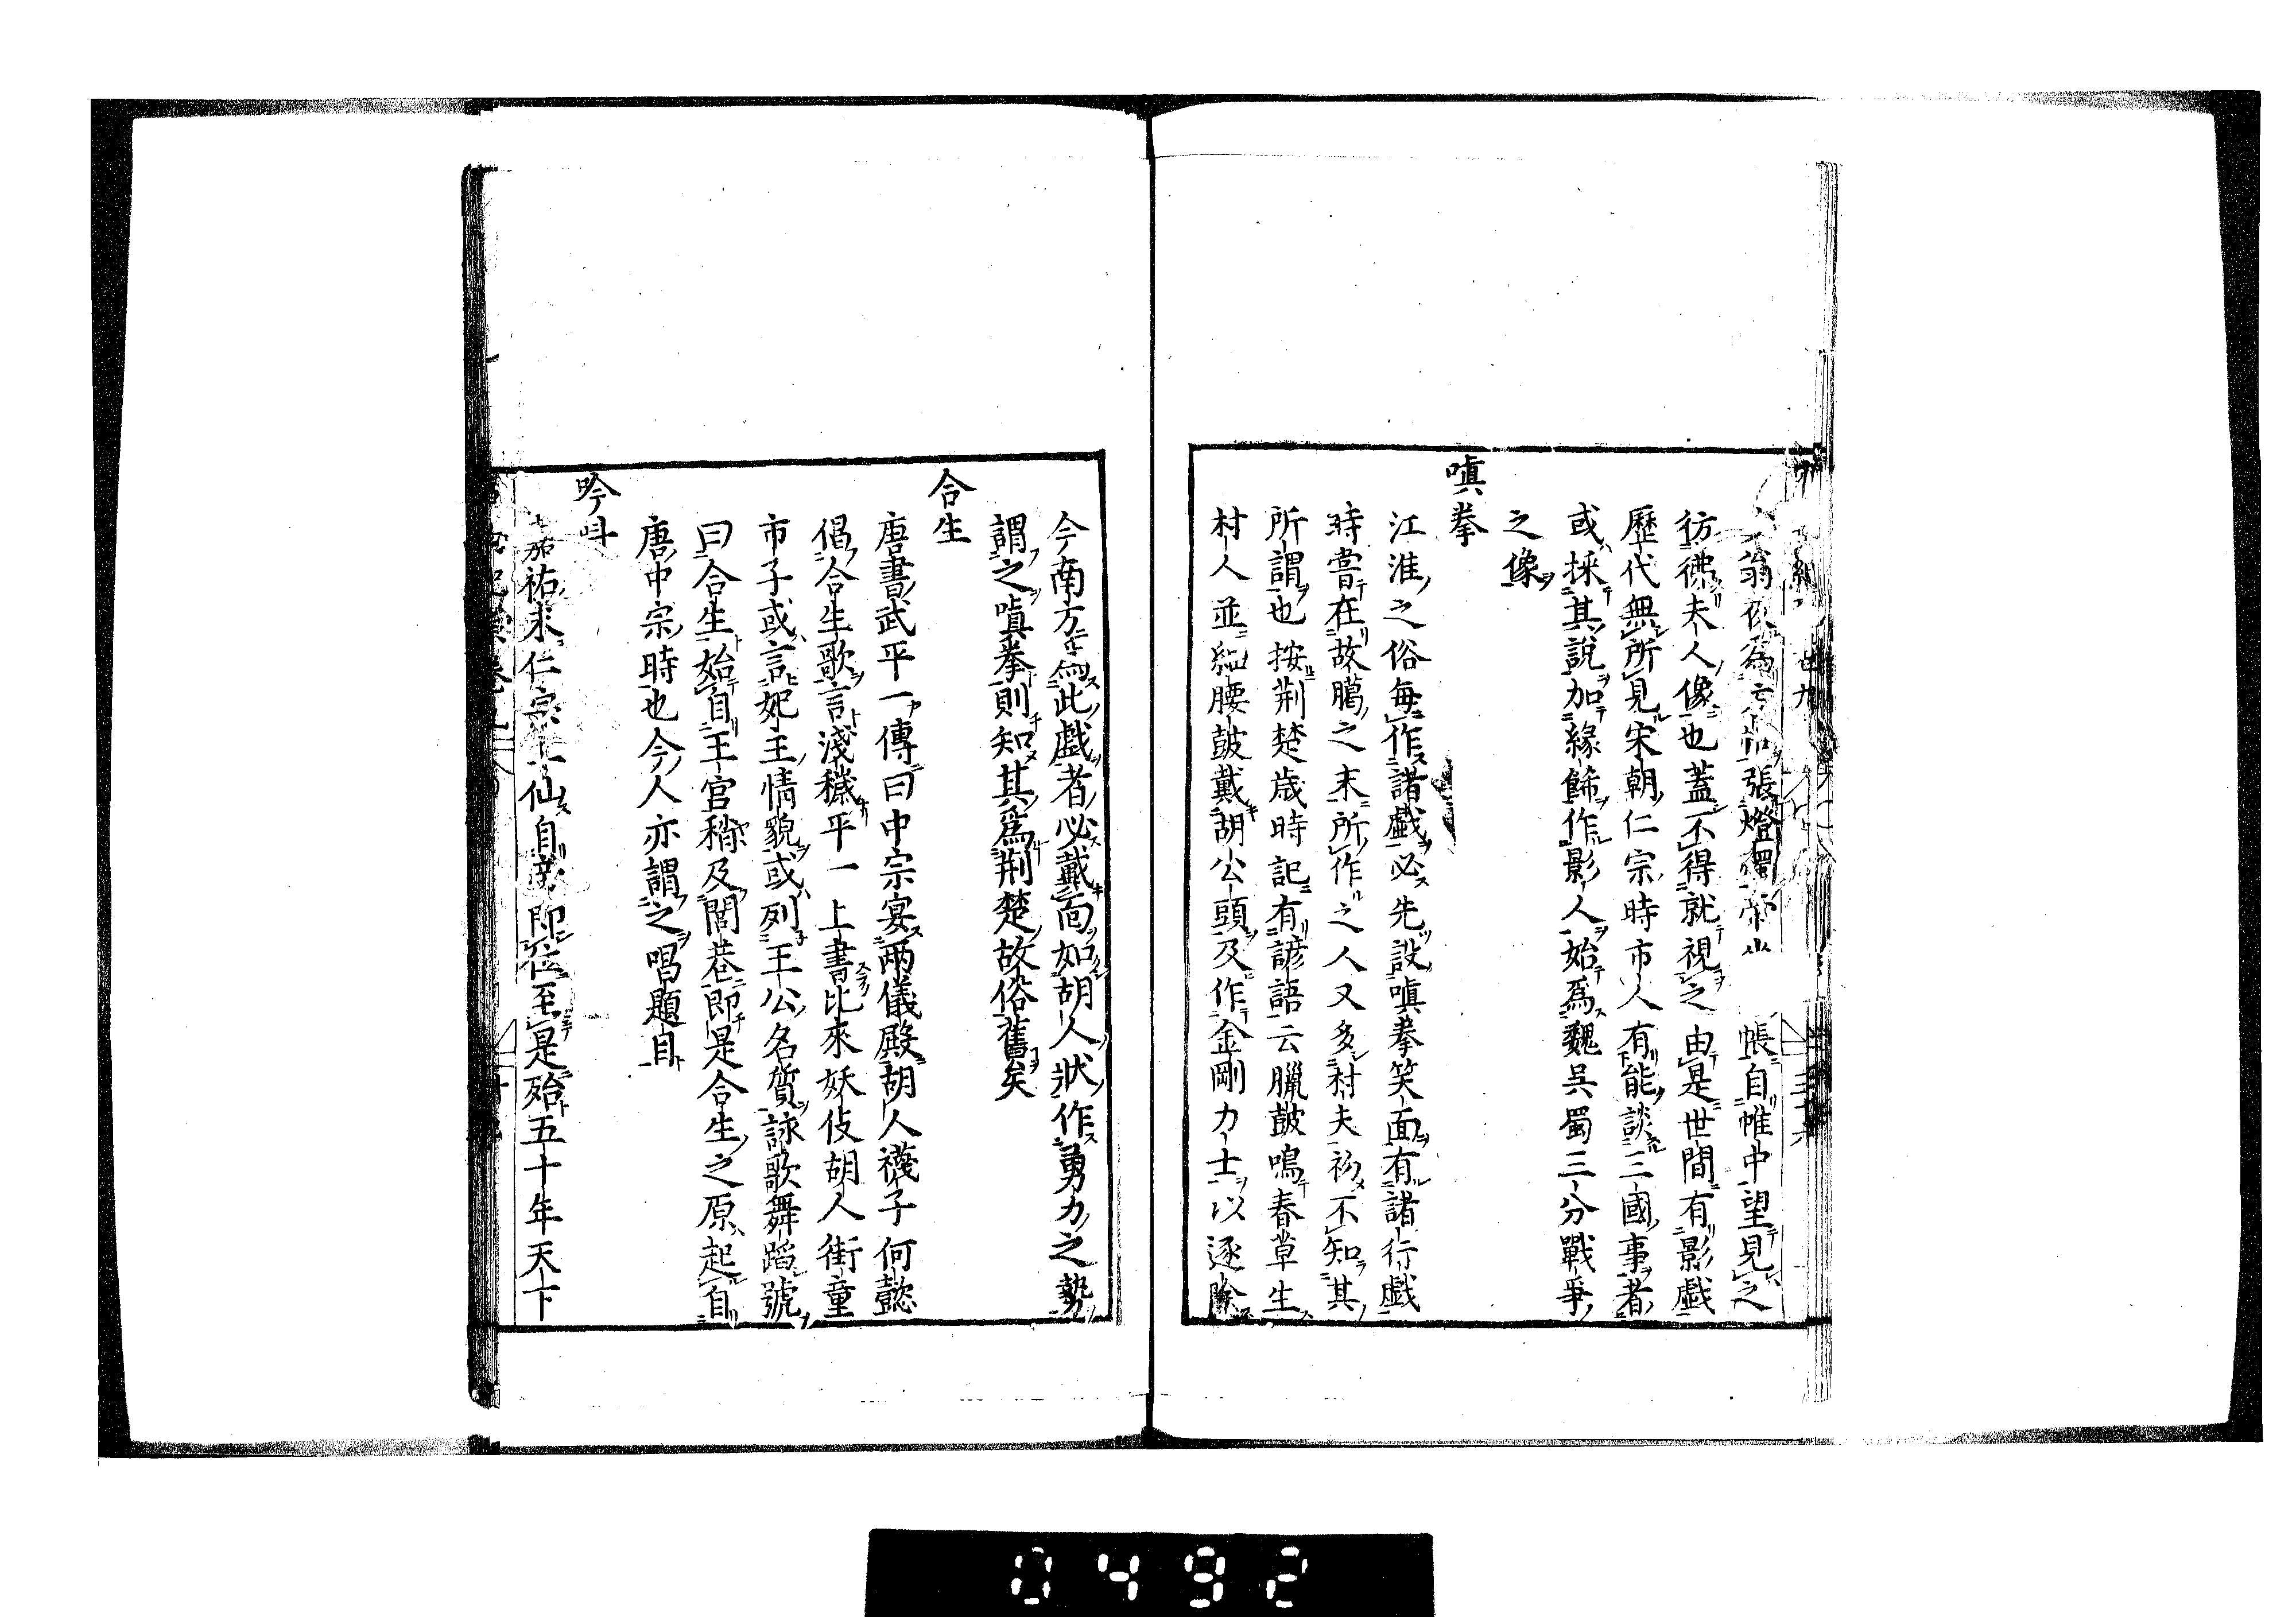 翁夜為 張燈 帳自帷中望見之
彷彿夫人像也蓋不得就視之由是世間有影戲
歷代無所見宋朝仁宗時市人有能談三國事者
或採其說加緣餙作影人始爲魏吳蜀三分戰爭
之像
嗔拳
江淮之俗每作諸戲必先設嗔拳笑面有諸行戲
時甞在故臈之末所作之人又多村夫初不知其
所謂也按荆楚歲時記有諺語云臘鼓鳴春草生
村人並細腰鼓戴胡公頭及作金剛力士以逐除
今南方爲此戲者必戴面如胡人狀作勇力之勢
謂之嗔拳則知其爲荆楚故俗舊矣
合生
唐書武平一傳曰中宗宴兩儀殿胡人襪子何懿
倡合生歌言淺穢平一上書比來妖伎胡人街童
市子或言妃主情貌或列王公名質詠歌舞蹈號
曰合生始自王官稍及閭巷即是合生之原起自
唐中宗時也今人亦謂之唱題目
吟叫
嘉祐末仁宗上仙自帝即位至是殆五十年天下
0492